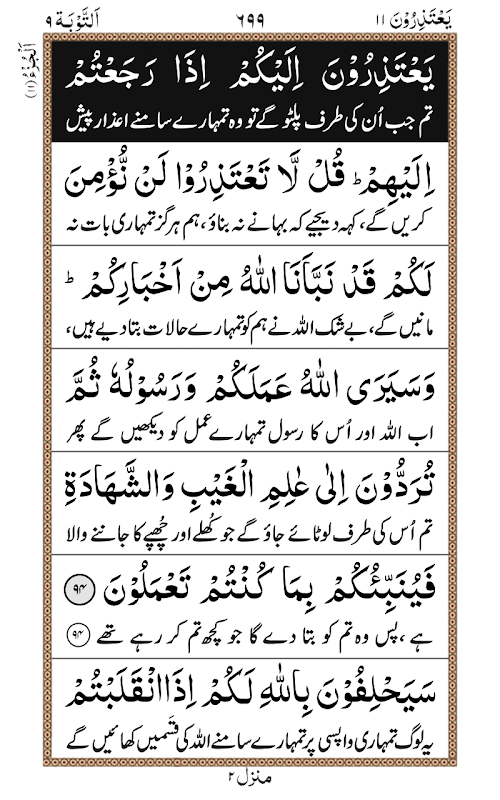 یَعْتَذِرُوْنَ ۱۱ ۶۹۹ اَلتَّوْبَة ۹
اَلْجُزْءُ (۱۱)
یَعْتَذِرُوْنَ اِلَیْكُمْ اِذَا رَجَعْتُمْ
تم جب اُن کی طرف پلٹو گے تو وہ تمہارے سامنے اعذار پیش
اِلَیْهِمْ ؕ قُلْ لَّا تَعْتَذِرُوْا لَنْ نُّؤْمِنَ
کریں گے، کہہ دیجیے کہ بہانے نہ بناؤ، ہم ہرگز تمہاری بات نہ
لَكُمْ قَدْ نَبَّاَنَا اللّٰهُ مِنْ اَخْبَارِكُمْ ؕ
مانیں گے، بے شک اللہ نے ہم کو تمہارے حالات بتا دیے ہیں،
وَسَیَرَی اللّٰهُ عَمَلَكُمْ وَرَسُوْلُهٗ ثُمَّ
اب اللہ اور اُس کا رسول تمہارے عمل کو دیکھیں گے پھر
تُرَدُّوْنَ اِلٰی عٰلِمِ الْغَیْبِ وَالشَّهَادَةِ
تم اُس کی طرف لوٹائے جاؤ گے جو کُھلے اور چُھپے کا جاننے والا
فَیُنَبِّئُكُمْ بِمَا كُنْتُمْ تَعْمَلُوْنَ ۹۴
ہے، پس وہ تم کو بتا دے گا جو کچھ تم کر رہے تھے ۹۴
سَیَحْلِفُوْنَ بِاللّٰهِ لَكُمْ اِذَا انْقَلَبْتُمْ
یہ لوگ تمہاری واپسی پر تمہارے سامنے اللہ کی قَسَمیں کھائیں گے
منزل ۲